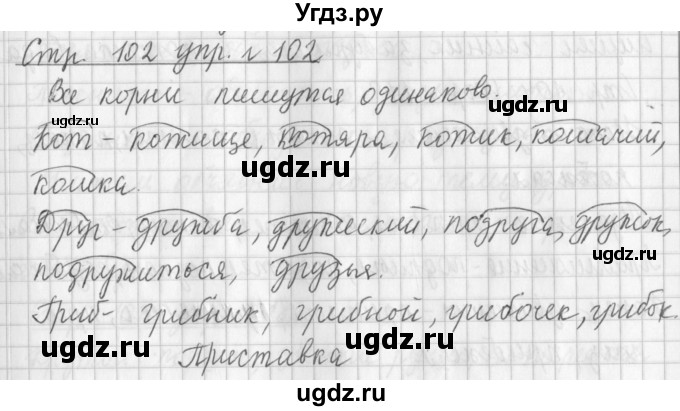 Угдз.ру
Стр. 102 упр. № 102
Все корни пишутся одинаково.
ugdz.ru
ugdz.ru
Кот – котище, котяра, котик, кошачий,
ugdz.ru
ugdz.ru
кошка.
Друг – дружба, дружеский, подруга, дружок,
ugdz.ru
подружиться, друзья.
ugdz.ru
Гриб – грибник, грибной, грибочек, грибок.
ugdz.ru
ugdz.ru
Приставка
ugdz.ru
ugdz.ru